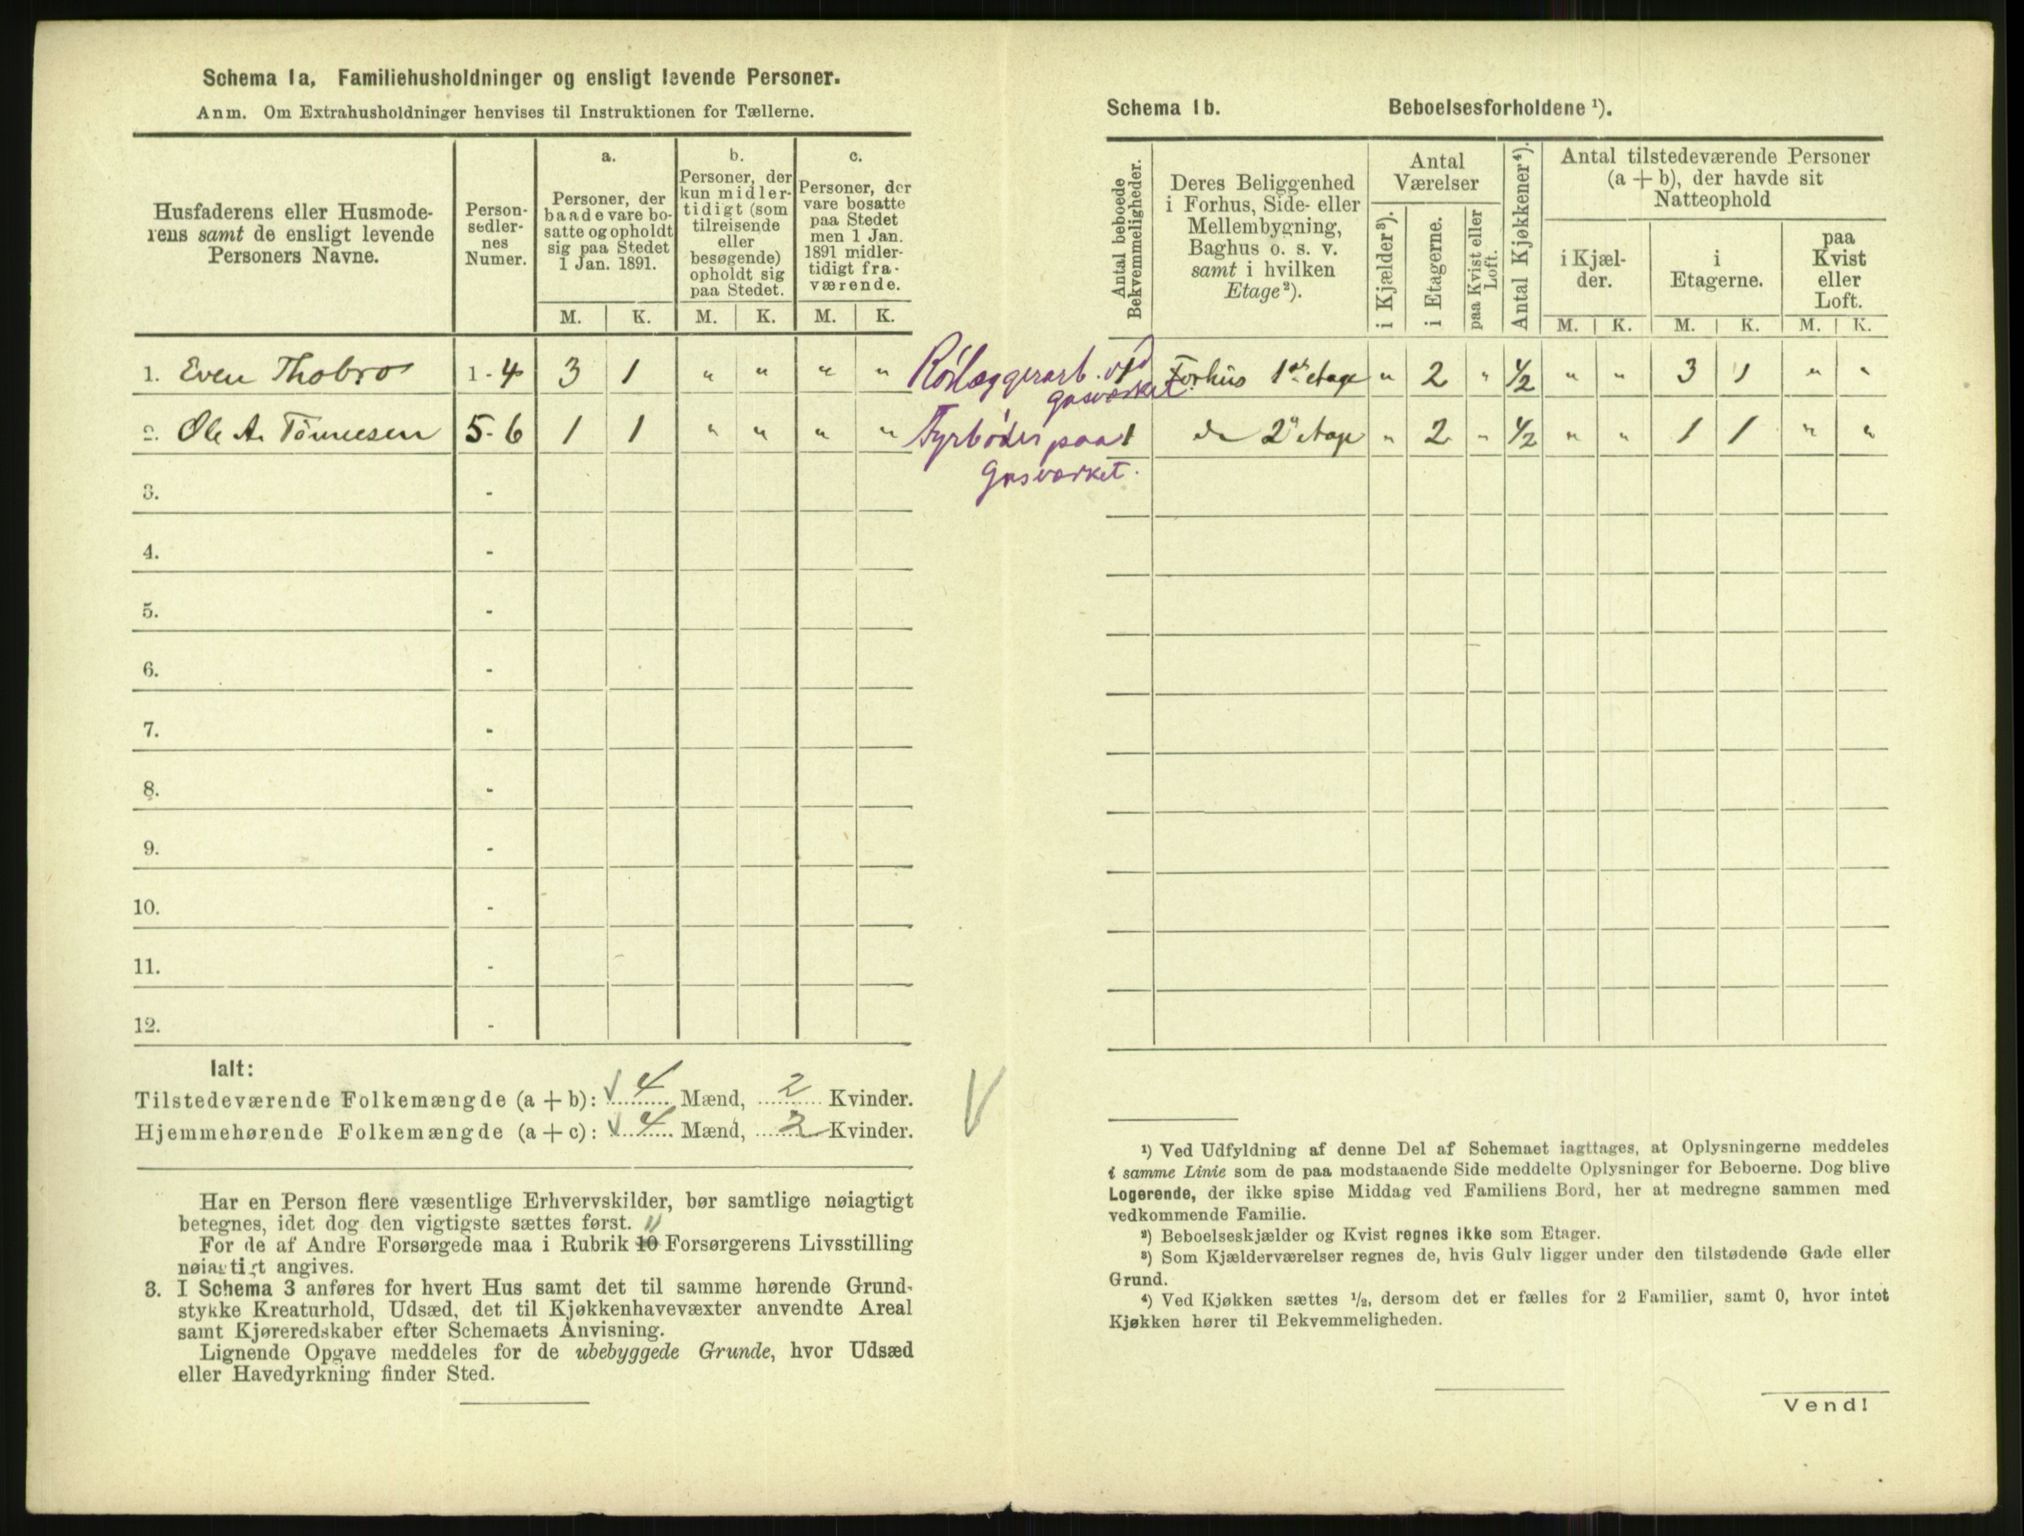 Schema 1a, Familiehusholdninger og ensligt levende Personer.
Anm. Om Extrahusholdninger henvises til Instruktionen for Tællerne.
Husfaderens eller Husmode-
rens samt de ensligt levende
Personers Navne.
Person-
sedler-
nes
Numer.
a.
Personer, der
baade vare bo-
satte og opholdt
sig paa Stedet
1 Jan. 1891.
b.
Personer, der
kun midler-
tidigt (som
tilreisende
eller
besøgende)
opholdt sig
paa Stedet.
c.
Personer, der
vare bosatte
paa Stedet
men 1 Jan.
1891 midler-
tidigt fra-
værende.
M. K. M. K. M. K.
1. Even Thobro 1-4 3 1 " " " " Rørlæggerarb. ved
Gasværket
2. Ole A. Tönnesen 5-6 1 1 " " " " Fyrbøder paa
Gasværket.
3. -
4. -
5. -
6. -
7. -
8. -
9. -
10. -
11. -
12. -
Ialt:
Tilstedeværende Folkemængde (a + b): 4 Mænd, 2 Kvinder.
Hjemmehørende Folkemængde (a + c): 4 Mænd, 2 Kvinder.
Har en Person flere væsentlige Erhvervskilder, bør samtlige nøiagtigt
betegnes, idet dog den vigtigste sættes først.
11
For de af Andre Forsørgede maa i Rubrik 10 Forsørgerens Livsstilling
nøiagtigt angives.
3. I Schema 3 anføres for hvert Hus samt det til samme hørende Grund-
stykke Kreaturhold, Udsæd, det til Kjøkkenhavevæxter anvendte Areal
samt Kjøreredskaber efter Schemaets Anvisning.
Lignende Opgave meddeles for de ubebyggede Grunde, hvor Udsæd
eller Havedyrkning finder Sted.
Schema 1b. Beboelsesforholdene ¹).
Antal beboede
Bekvemmeligheder.
Deres Beliggenhed
i Forhus, Side- eller
Mellembygning,
Baghus o. s. v.
samt i hvilken
Etage²).
Antal
Værelser
i Kjælder³).
i Etagerne.
paa Kvist eller
Loft.
Antal Kjøkkener⁴).
Antal tilstedeværende Personer
(a + b), der havde sit
Natteophold
i Kjæl-
der.
i
Etagerne.
paa
Kvist
eller
Loft.
M. K. M. K. M. K.
1 Forhus 1ste etage " 2 " 1/2 " " 3 1 " "
1 do 2n etage " 2 " 1/2 " " 1 1 " "
¹) Ved Udfyldning af denne Del af Schemaet iagttages, at Oplysningerne meddeles
i samme Linie som de paa modstaaende Side meddelte Oplysninger for Beboerne. Dog blive
Logerende, der ikke spise Middag ved Familiens Bord, her at medregne sammen med
vedkommende Familie.
²) Beboelseskjælder og Kvist regnes ikke som Etager.
³) Som Kjælderværelser regnes de, hvis Gulv ligger under den tilstødende Gade eller
Grund.
⁴) Ved Kjøkken sættes ½, dersom det er fælles for 2 Familier, samt 0, hvor intet
Kjøkken hører til Bekvemmeligheden.
Vend!